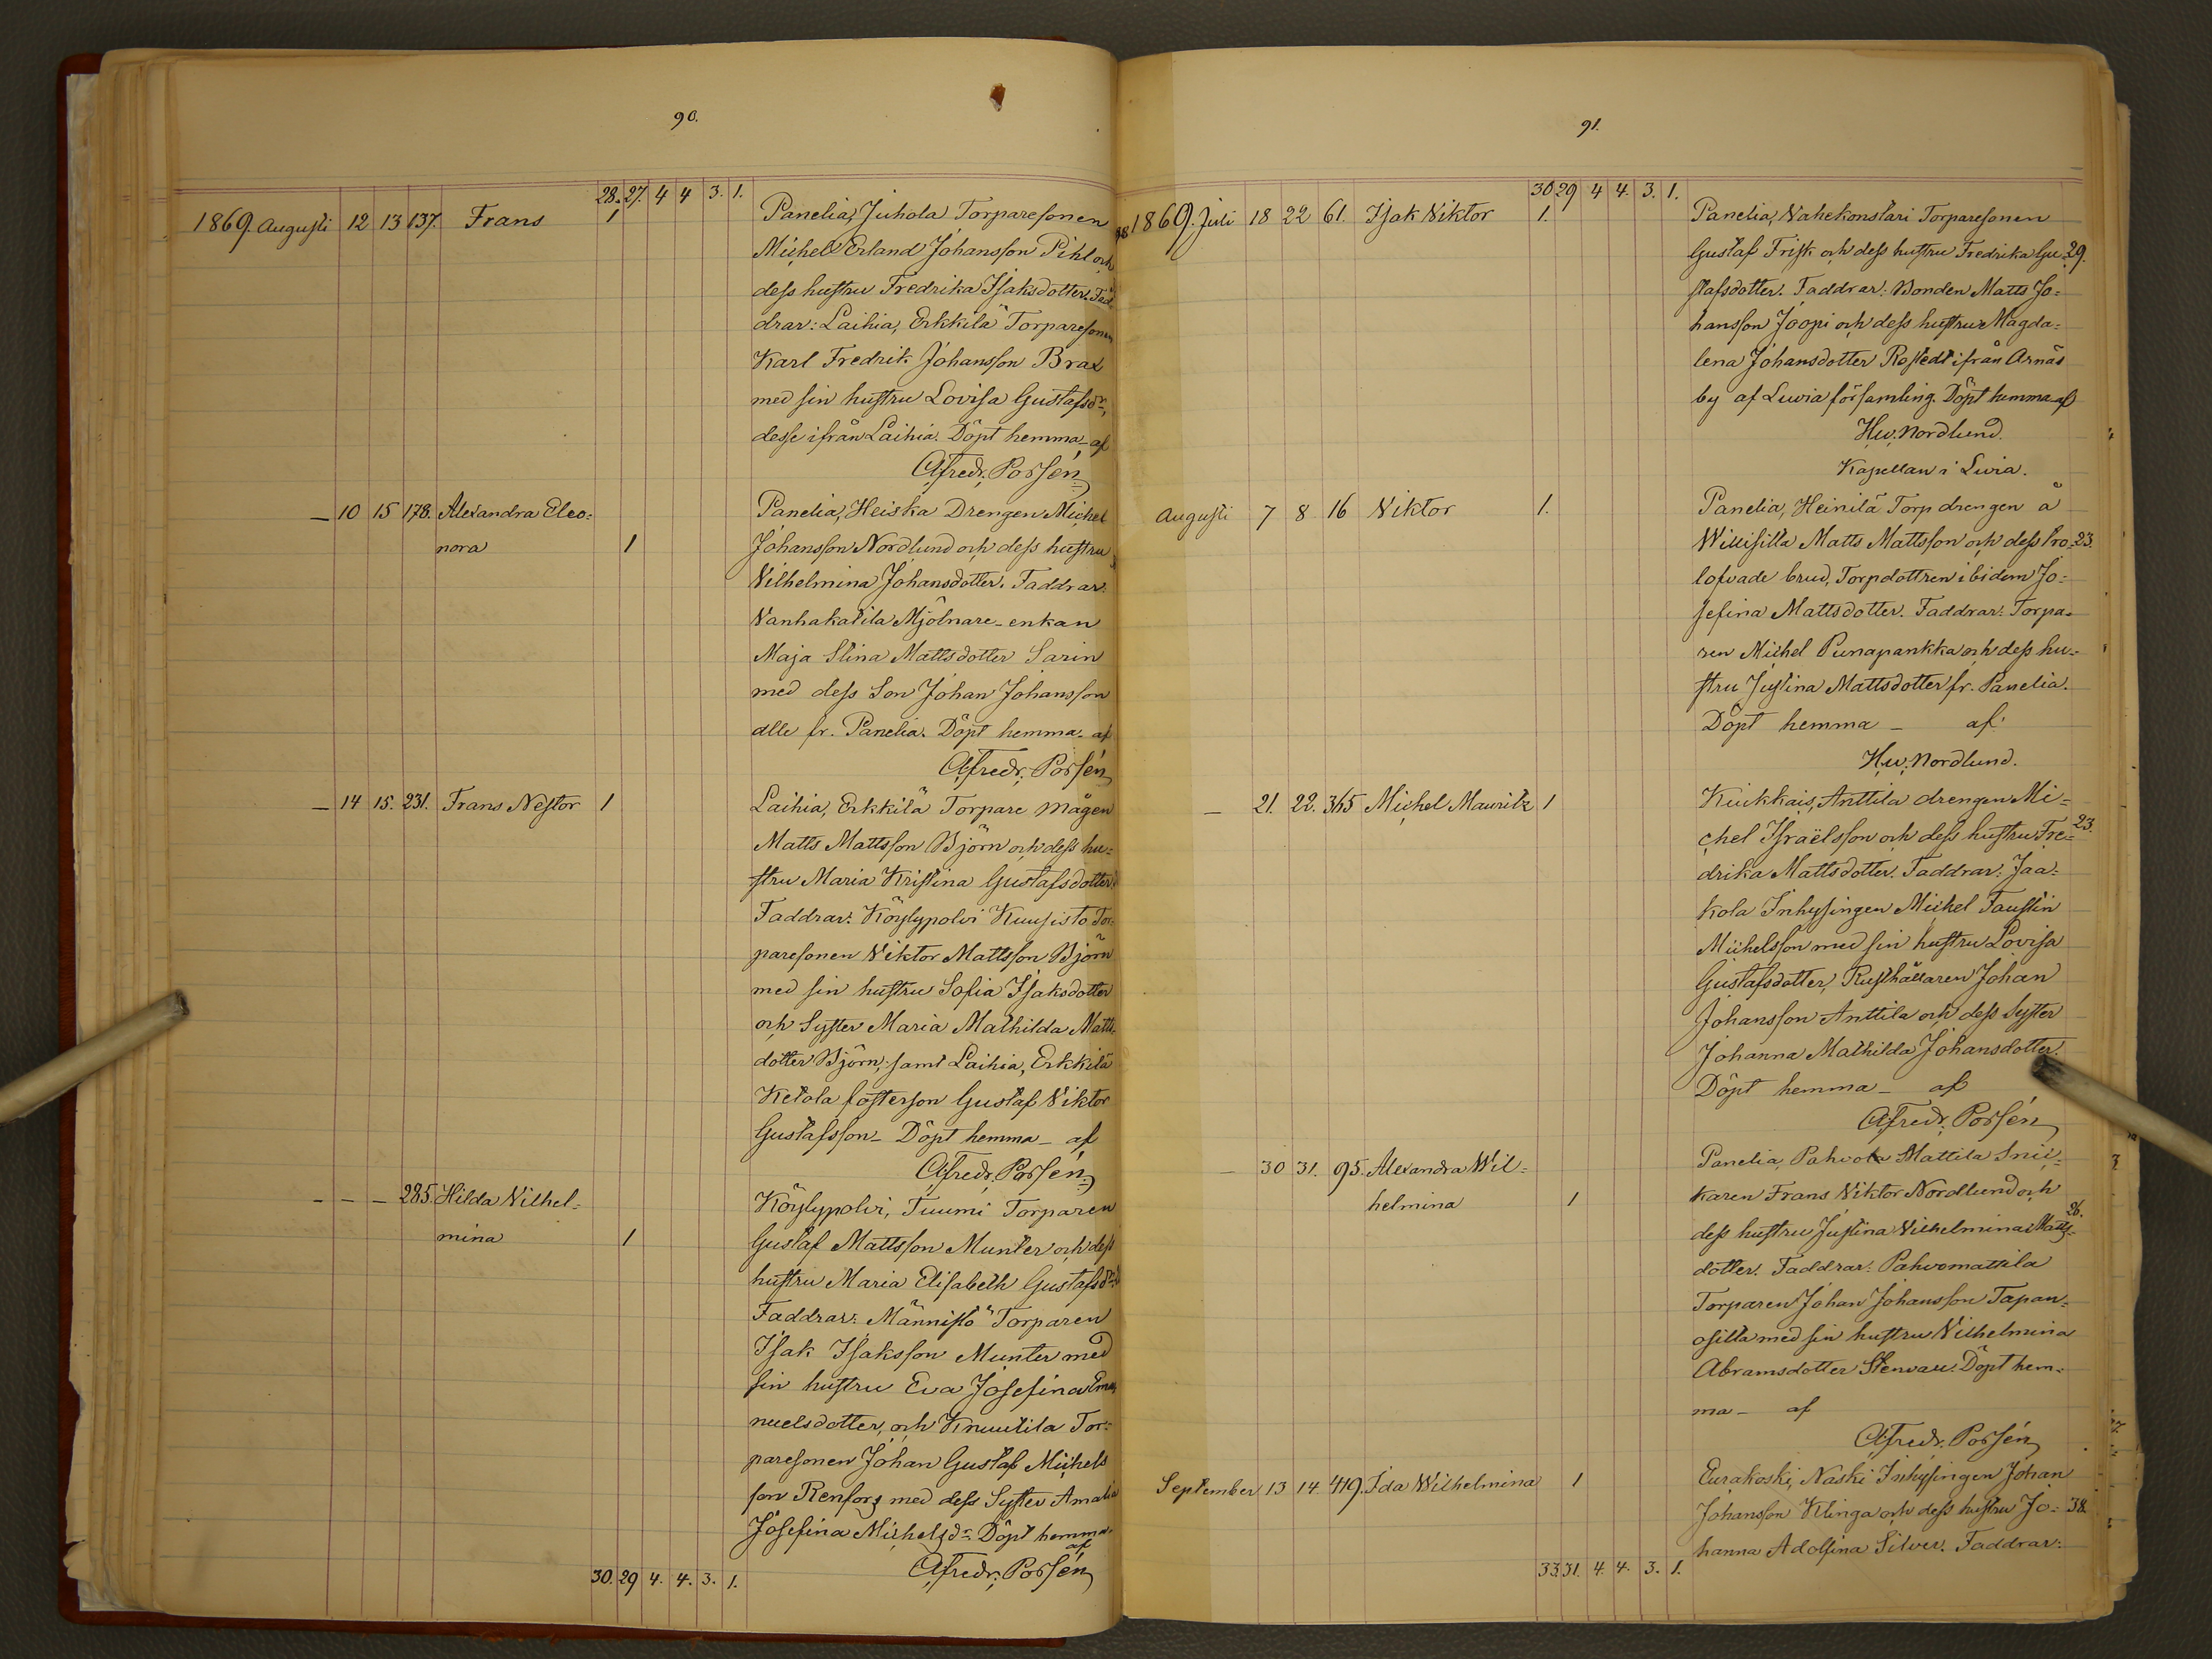 90.
28. 27. 4 4 3. 1.
1869. Augusti 12 13 137. Frans 1 Panelia, Juhola Torparesonen
Michel Erland Johansson Pihl och
dess hustru Fredrika Isaksdotter. Fad
drar: Laihia, Erkkilä Torparesonen
Karl Fredrik Johansson Brax
med sin hustru Lovisa Gustafsdr,
desse ifrån Laihia. Döpt hemma - af
Afredr. Porsén
— 10 15 178. Alexandra Eleo= Panelia, Heiska Drengen Michel
nora 1 Johansson Nordlund och dess hustru
Vilhelmina Johansdotter. Faddrar:
Vanhakatila Mjölnare-enkan
Maja Stina Mattsdotter Sarin
med dess Son Johan Johansson
alle fr. Panelia. Döpt hemma - af
Afredr. Porsén
— 14 15. 231. Frans Nestor 1 Laihia, Erkkilä Torpare mågen
Matts Mattsson Björn och dess hu=
stru Maria Kristina Gustafsdotter
Faddrar: Köylypolvi Kuusisto Tor=
paresonen Viktor Mattsson Björn
med sin hustru Sofia Isaksdotter
och Syster Maria Mathilda Matts
dotter Björn, samt Laihia, Erkkilä
Ketola fosterson Gustaf Viktor
Gustafsson - Döpt hemma - af
Afredr. Porsén
- - - 285. Hilda Vilhel= Köylypolvi, Tuumi Torparen
mina 1 Gustaf Mattsson Munter och dess
hustru Maria Elisabeth Gustafsdr
Faddrar: Männistö Torparen
Isak Isaksson Munter med
sin hustru Eva Josefina Ema
nuelsdotter, och Knuutila Tor=
paresonen Johan Gustaf Michels
son Renfors med dess Syster Amalia
Josefina Michelsdr Döpt hemma -
af
Afredr. Porsén
30. 29 4. 4. 3. 1.
91.
30 29 4 4. 3. 1.
1869. Juli 18 22 61. Isak Viktor 1. Panelia, Vahekonstari Torparesonen
Gustaf Frisk och dess hustru Fredrika Gu= 29.
stafsdotter. Faddrar: Bonden Matts Jo=
hansson Joopi och dess hustru Magda=
lena Johansdotter Rostedt ifrån Arnäs
by af Luvia församling. Döpt hemma af
Hw. Nordlund.
Kapellan i Luvia.
Augusti 7 8 16 Viktor 1. Panelia, Heinilä Torp drengen å
Willisilla Matts Mattsson och dess tro= 23.
lofvade brud, Torpdottren ibidem Jo=
sefina Mattsdotter. Faddrar: Torpa=
ren Michel Punapankka och dess hu=
stru Justina Mattsdotter fr. Panelia.
Döpt hemma - af
Hw. Nordlund.
— 21. 22. 365 Michel Mauritz 1 Kiukkais, Anttila drengen Mi=
chel Israëlsson och dess hustru Fre= 23.
drika Mattsdotter. Faddrar: Jaa=
kola Inhysingen Michel Faustin
Michelsson med sin hustru Lovisa
Gustafsdotter, Rusthållaren Johan
Johansson Anttila och dess Syster
Johanna Mathilda Johansdotter.
Döpt hemma - af
Afredr. Porsén
— 30 31. 95. Alexandra Wil= Panelia, Pahvola Mattila Snic=
helmina 1 karen Frans Viktor Nordlund och
dess hustru Justina Vilhelmina Matts= 26.
dotter. Faddrar: Pahvomattila
Torparen Johan Johansson Tapan=
osilta med sin hustru Vilhelmina
Abramsdotter Stenvall. Döpt hem=
ma - af
Afredr. Porsén
September 13 14. 419. Ida Wilhelmina 1 Eurakoski, Naski Inhysingen Johan
Johansson Klinga och dess hustru Jo= 38.
hanna Adolfina Silver. Faddrar:
33. 31. 4. 4. 3. 1.